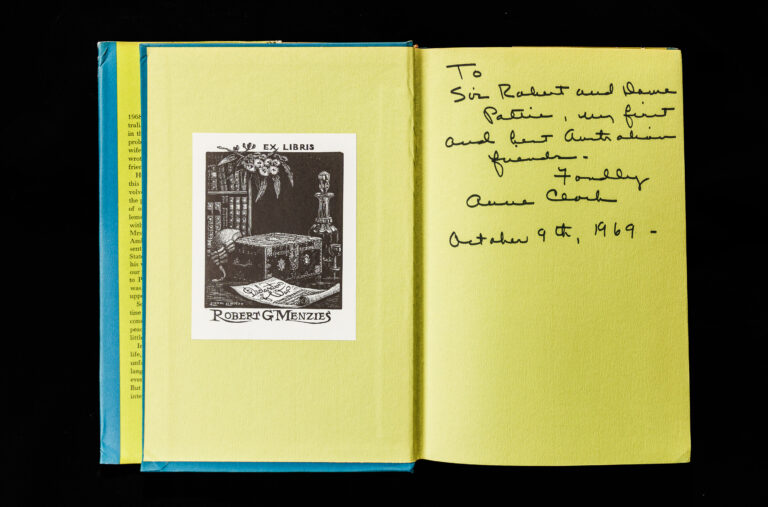 1968
tralia
in th
prob
wife
wrot
frien
this
volve
the p
of o
leme
with
Mrs.
Amb
sent
State
his
our
to P
was
uppe
tine
com
peac
little
life,
lang
ever
But
inte
EX LIBRIS
ROBERT G MENZIES
To
Sir Robert and Dame
Pattie, my first
and best Australian
friends -
Fondly
Anne Clark
October 9th, 1969 -